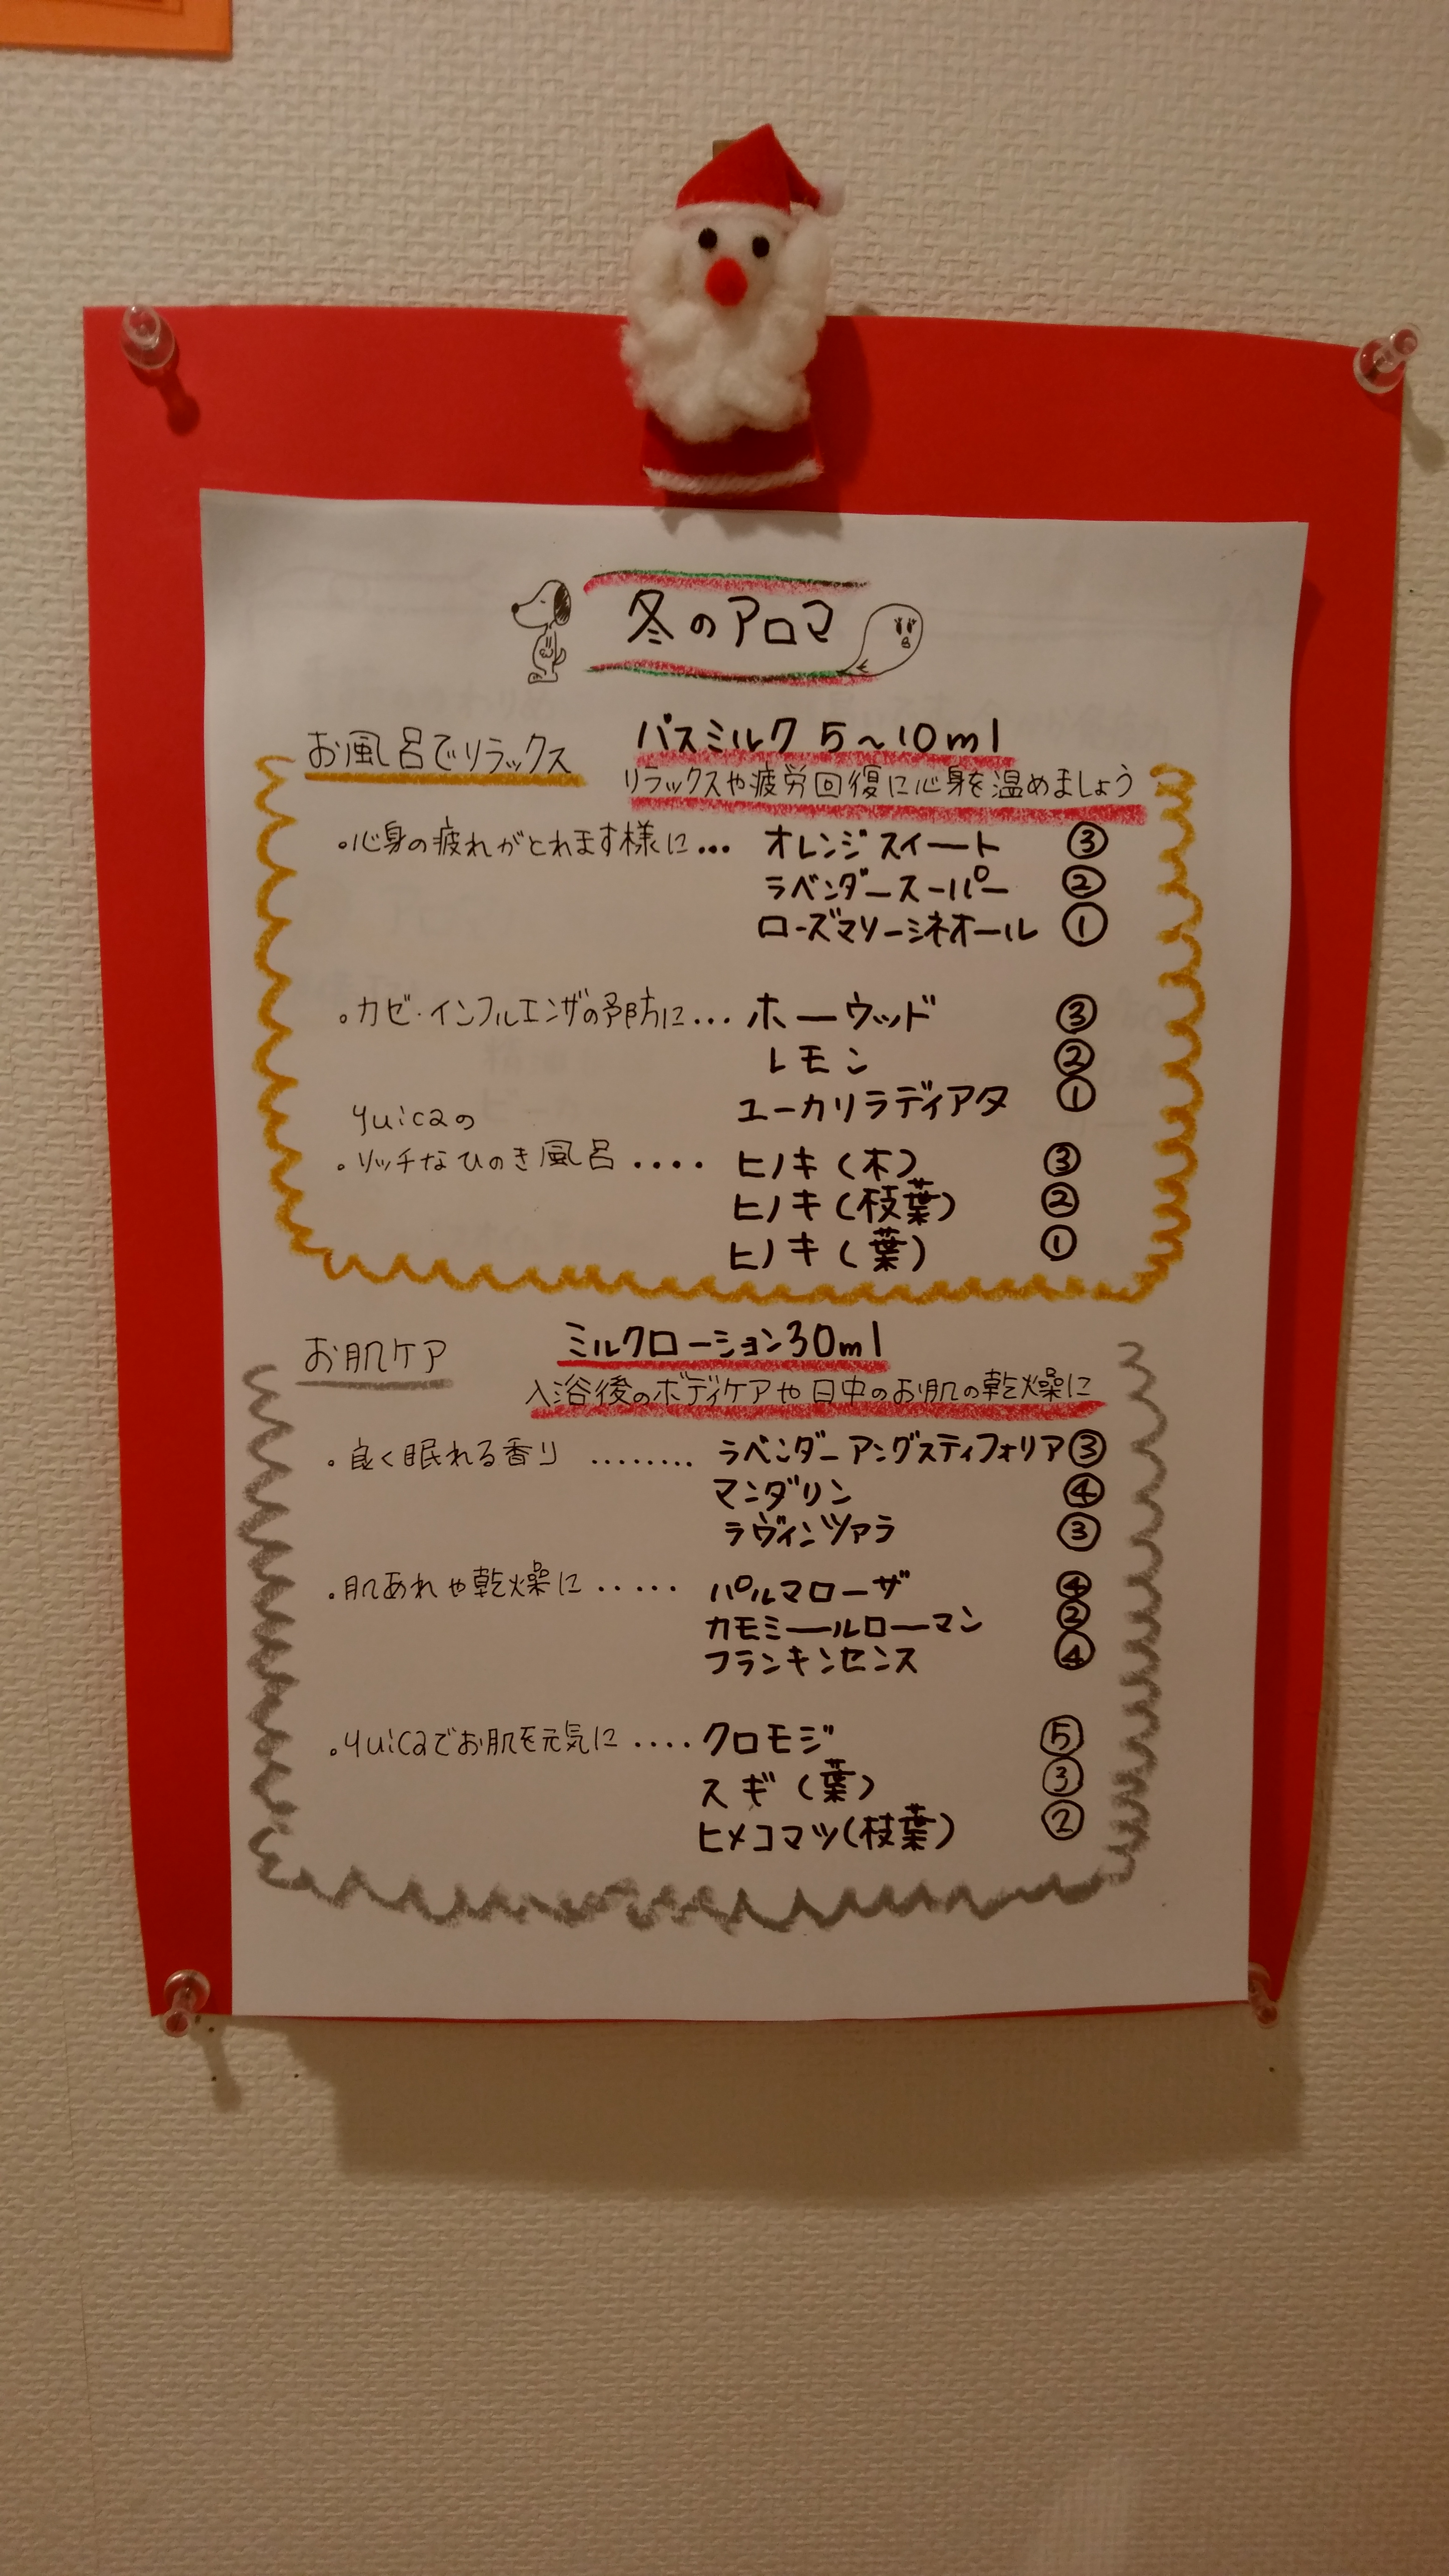 冬のアロマ
お風呂でリラックス
バスミルク 5~10ml
リラックスや疲労回復に心身を温めましょう
・心身の疲れがとれます様に... オレンジスイート ③
ラベンダースーパー ②
ローズマリーシネオール ①
・カゼ・インフルエンザの予防に... ホーウッド ③
レモン ②
ユーカリラディアタ ①
yuicaの
・リッチなひのき風呂.... ヒノキ(木) ③
ヒノキ(枝葉) ②
ヒノキ(葉) ①
お肌ケア
ミルクローション30ml
入浴後のボディケアや日中のお肌の乾燥に
・良く眠れる香り ........ ラベンダーアングスティフォリア③
マンダリン ④
ラヴィンツァラ ③
・肌あれや乾燥に ..... パルマローザ ④
カモミールローマン ②
フランキンセンス ④
・yuicaでお肌を元気に .... クロモジ ⑤
スギ(葉) ③
ヒメコマツ(枝葉) ②